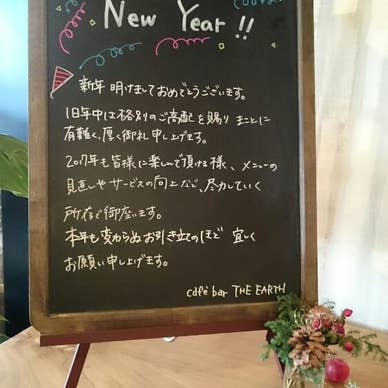 New Year!!
新年 明けましておめでとうございます。
旧年中は格別のご高配を賜り まことに
有難く、厚く御礼申し上げます。
2017年も皆様に楽しんで頂ける様、メニューの
見直しやサービスの向上など、尽力していく
所存で御座います。
本年も変わらぬお引き立てのほど 宜しく
お願い申し上げます。
café bar THE EARTH